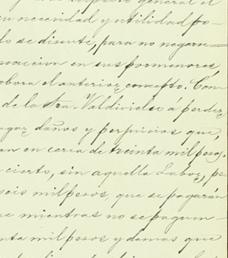 general el
necesidad y utilidad pº-
lo se discute, para no negar-
en sus pormenores,
el anterior concepto. Con
de la Sra. Valdivielso a perder,
daños y perjuicios que,
an en cerca de treinta mil pesos.
cierto, sin aquella labor, pº
seis mil pesos, que se pagarán
e mientras no se paguen
nta mil pesos y demas que